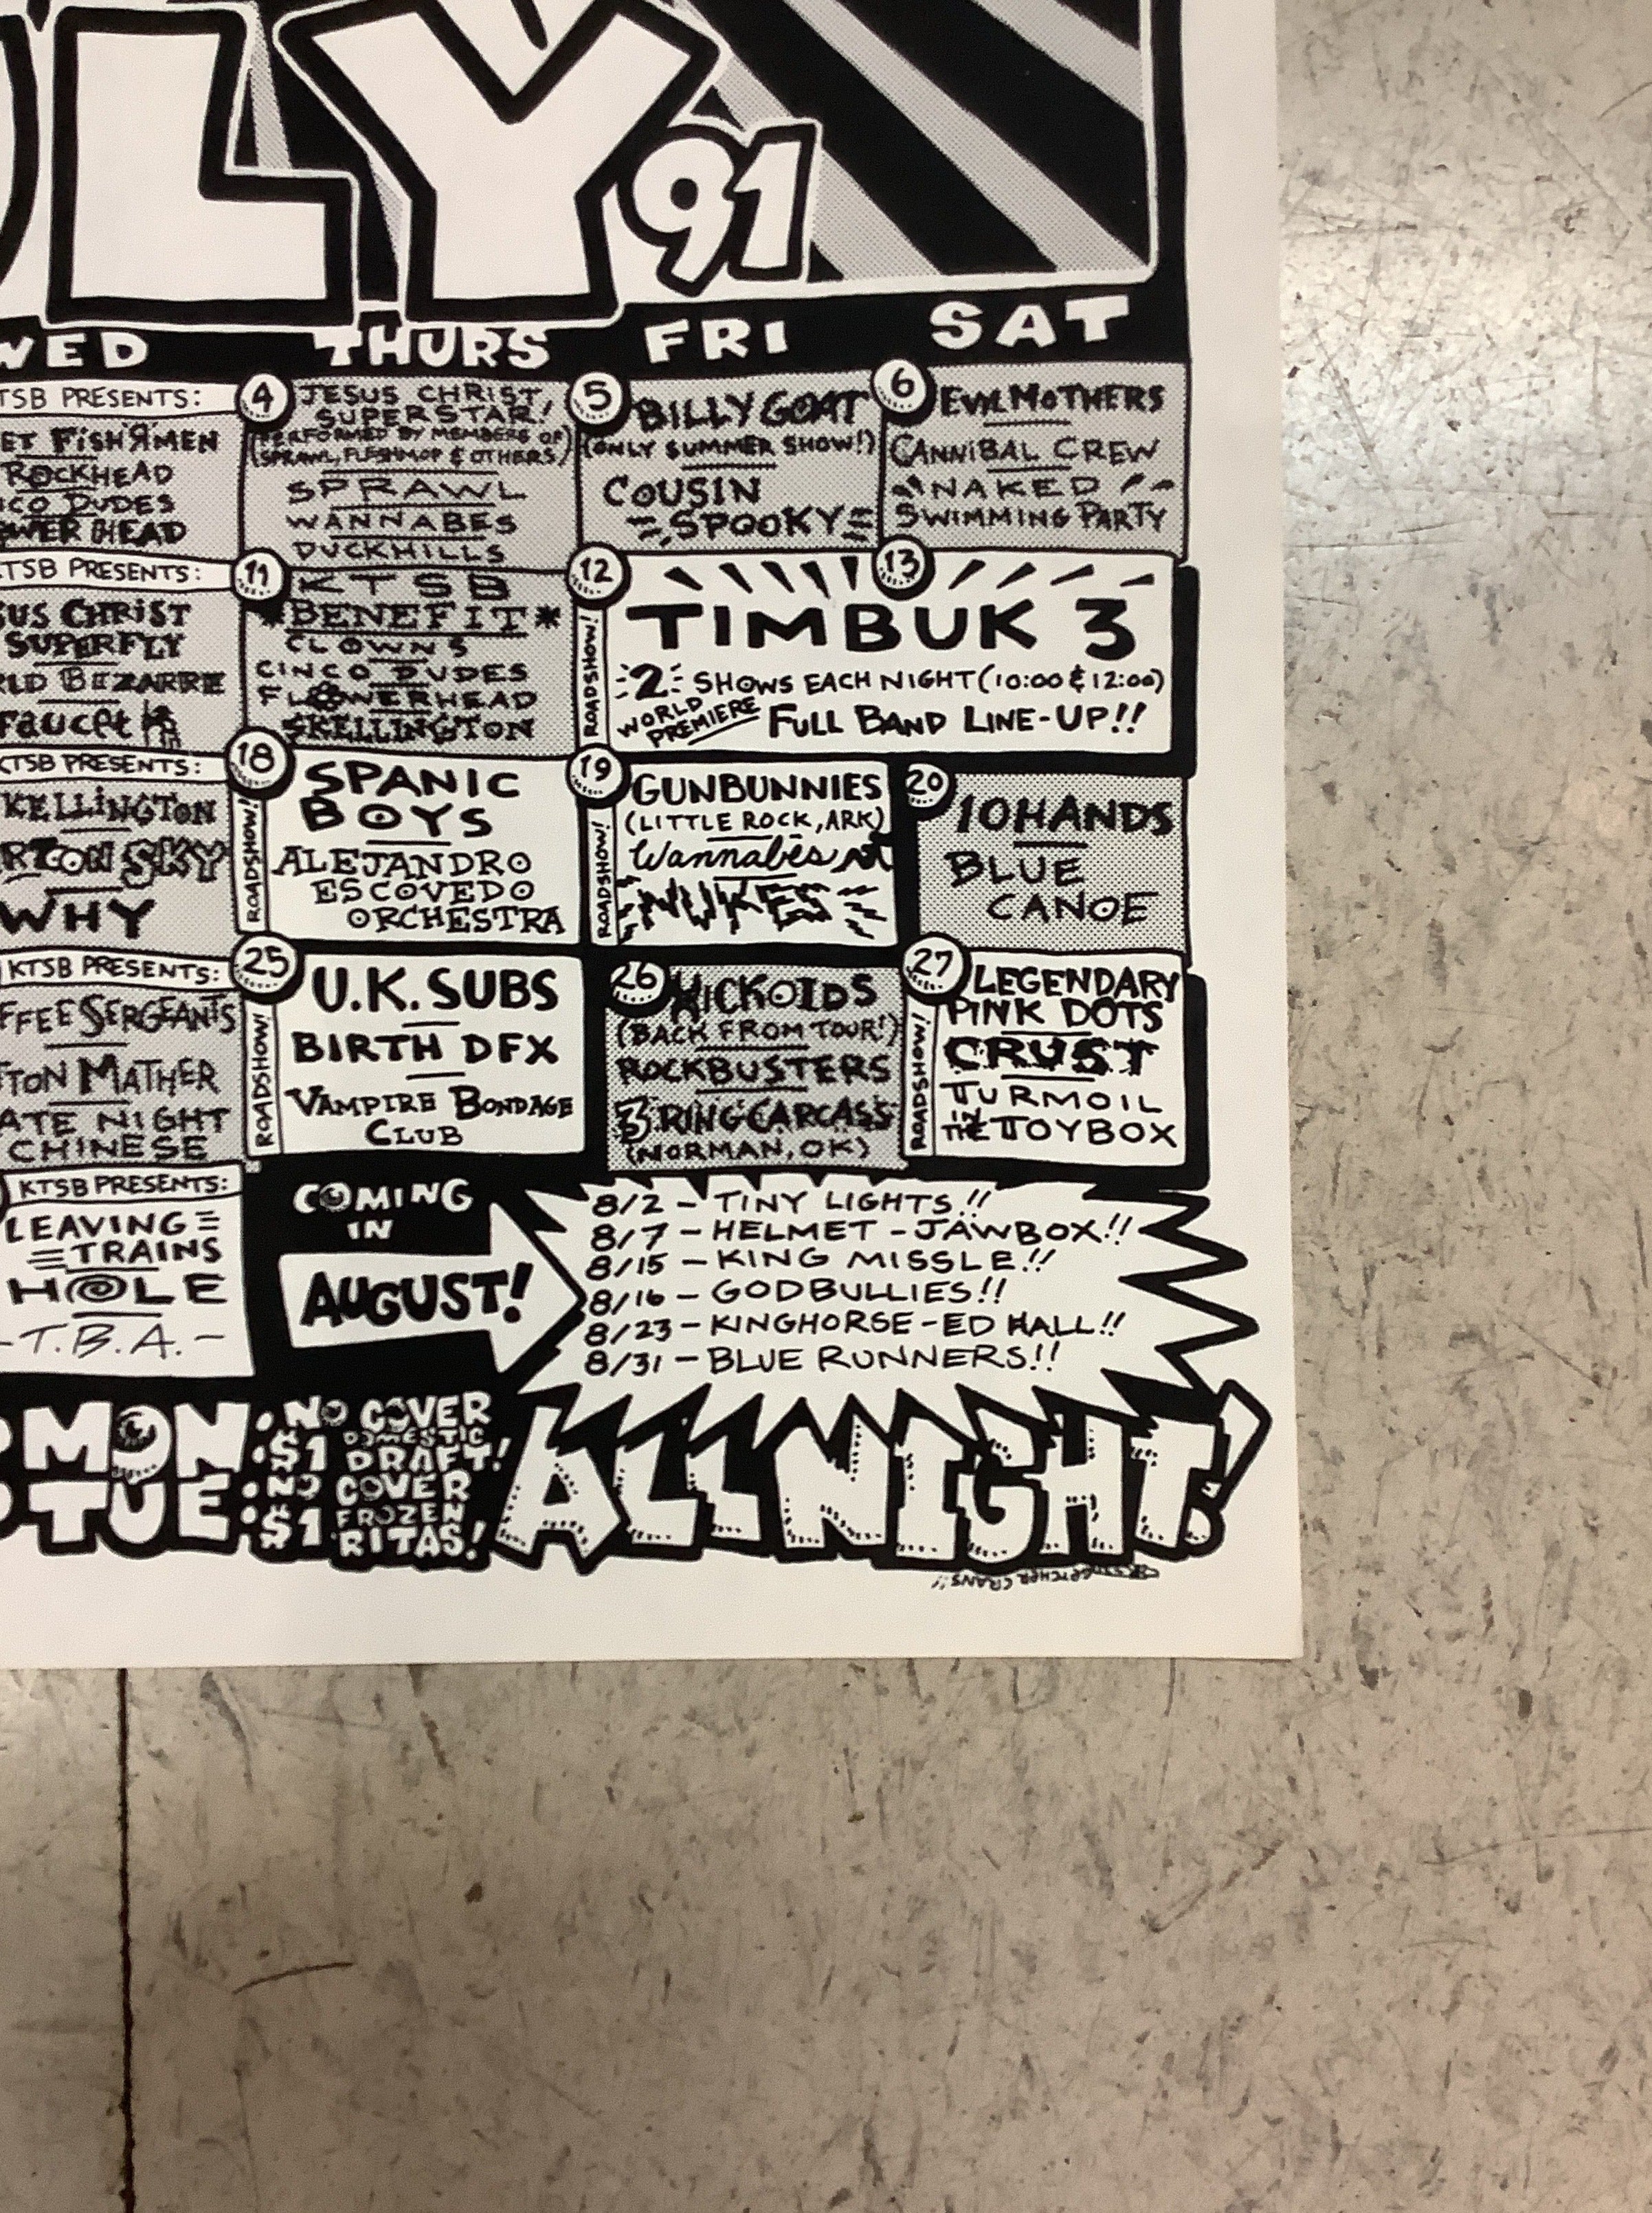 LY 91
WED THURS FRI SAT
KTSB PRESENTS:
FISHЯMEN
ROCKHEAD
DUDES
HEAD
4
JESUS CHRIST
SUPERSTAR!
(PERFORMED BY MEMBERS OF
SPRAWL, FLESHMOP & OTHERS)
SPRAWL
WANNABES
DUCKHILLS
5
BILLY GOAT
(ONLY SUMMER SHOW!)
COUSIN
SPOOKY
6
EVIL MOTHERS
CANNIBAL CREW
"NAKED"
SWIMMING PARTY
KTSB PRESENTS:
CHRIST
SUPERFLY
BIZARRE
FAUCET
11
KTSB
*BENEFIT*
CLOWNS
CINCO DUDES
FLOWERHEAD
SKELLINGTON
12 13
ROADSHOW!
TIMBUK 3
2 SHOWS EACH NIGHT (10:00 & 12:00)
WORLD
PREMIERE FULL BAND LINE-UP!!
KTSB PRESENTS:
KELLINGTON
SKY
WHY
18
ROADSHOW!
SPANIC
BOYS
ALEJANDRO
ESCOVEDO
ORCHESTRA
19
ROADSHOW!
GUNBUNNIES
(LITTLE ROCK, ARK)
Wannabes
NUKES
20
10HANDS
BLUE
CANOE
KTSB PRESENTS:
SERGEANTS
MATHER
NIGHT
CHINESE
25
ROADSHOW!
U.K. SUBS
BIRTH DFX
VAMPIRE BONDAGE
CLUB
26
HICKOIDS
(BACK FROM TOUR!)
ROCKBUSTERS
3 RING CARCASS
(NORMAN, OK)
27
ROADSHOW!
LEGENDARY
PINK DOTS
CRUST
TURMOIL
IN
THE TOYBOX
KTSB PRESENTS:
LEAVING
TRAINS
HOLE
-T.B.A.-
COMING
IN
AUGUST!
8/2 - TINY LIGHTS!!
8/7 - HELMET - JAWBOX!!
8/15 - KING MISSLE!!
8/16 - GODBULLIES!!
8/23 - KINGHORSE - ED HALL!!
8/31 - BLUE RUNNERS!!
MON: NO COVER
$1 DOMESTIC
DRAFT!
TUE: NO COVER
$1 FROZEN
RITAS!
ALL NIGHT!